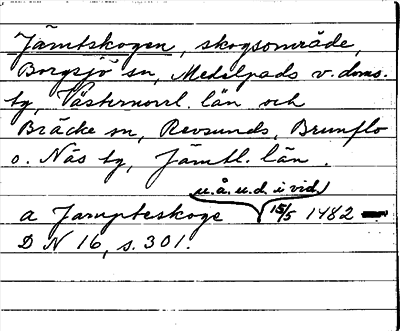 Jämtskogen, skogsområde,
Borgsjö sn, Medelpads v. doms.
tg, Västernorrl. län och
Bräcke sn, Revsunds, Brunflo
o. Näs tg, Jämtl. län.
u.å.u.d. i vid.
a Jampteskoge 15/5 1482
D N 16, s. 301.